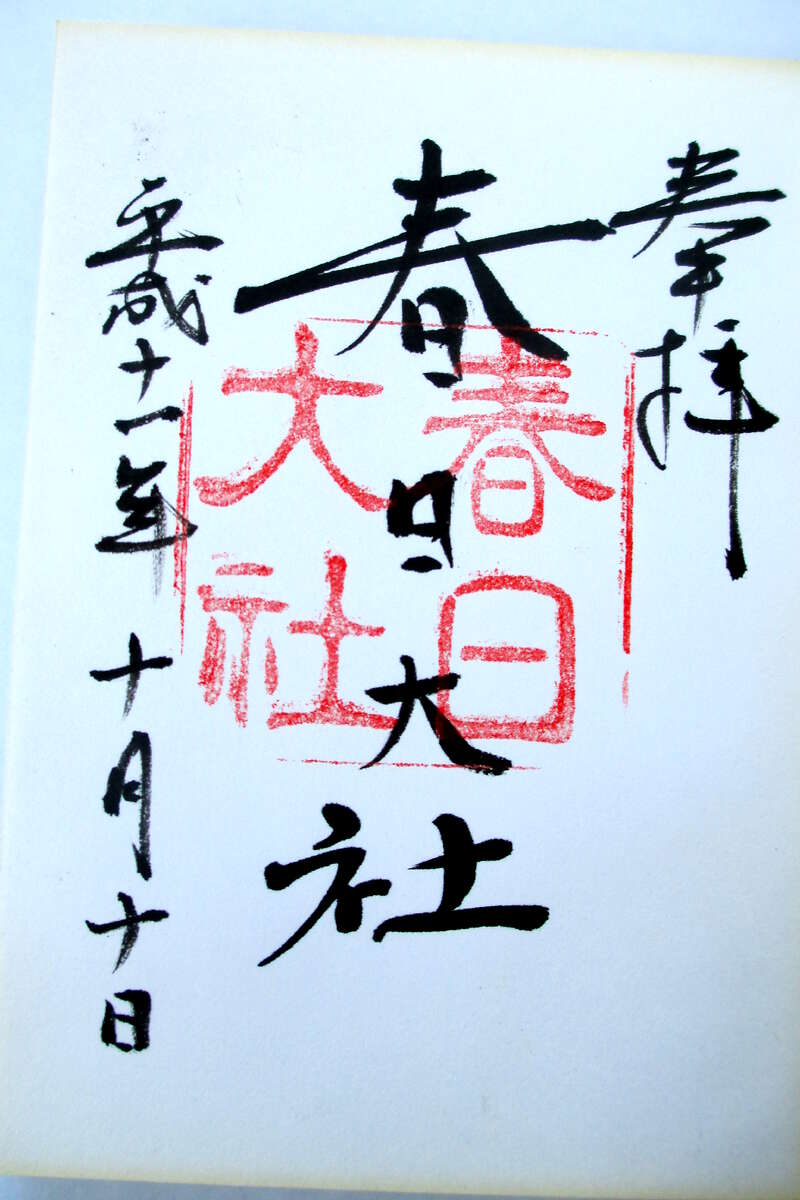 奉拝
春日大社
春日大社
平成十一年十月十日